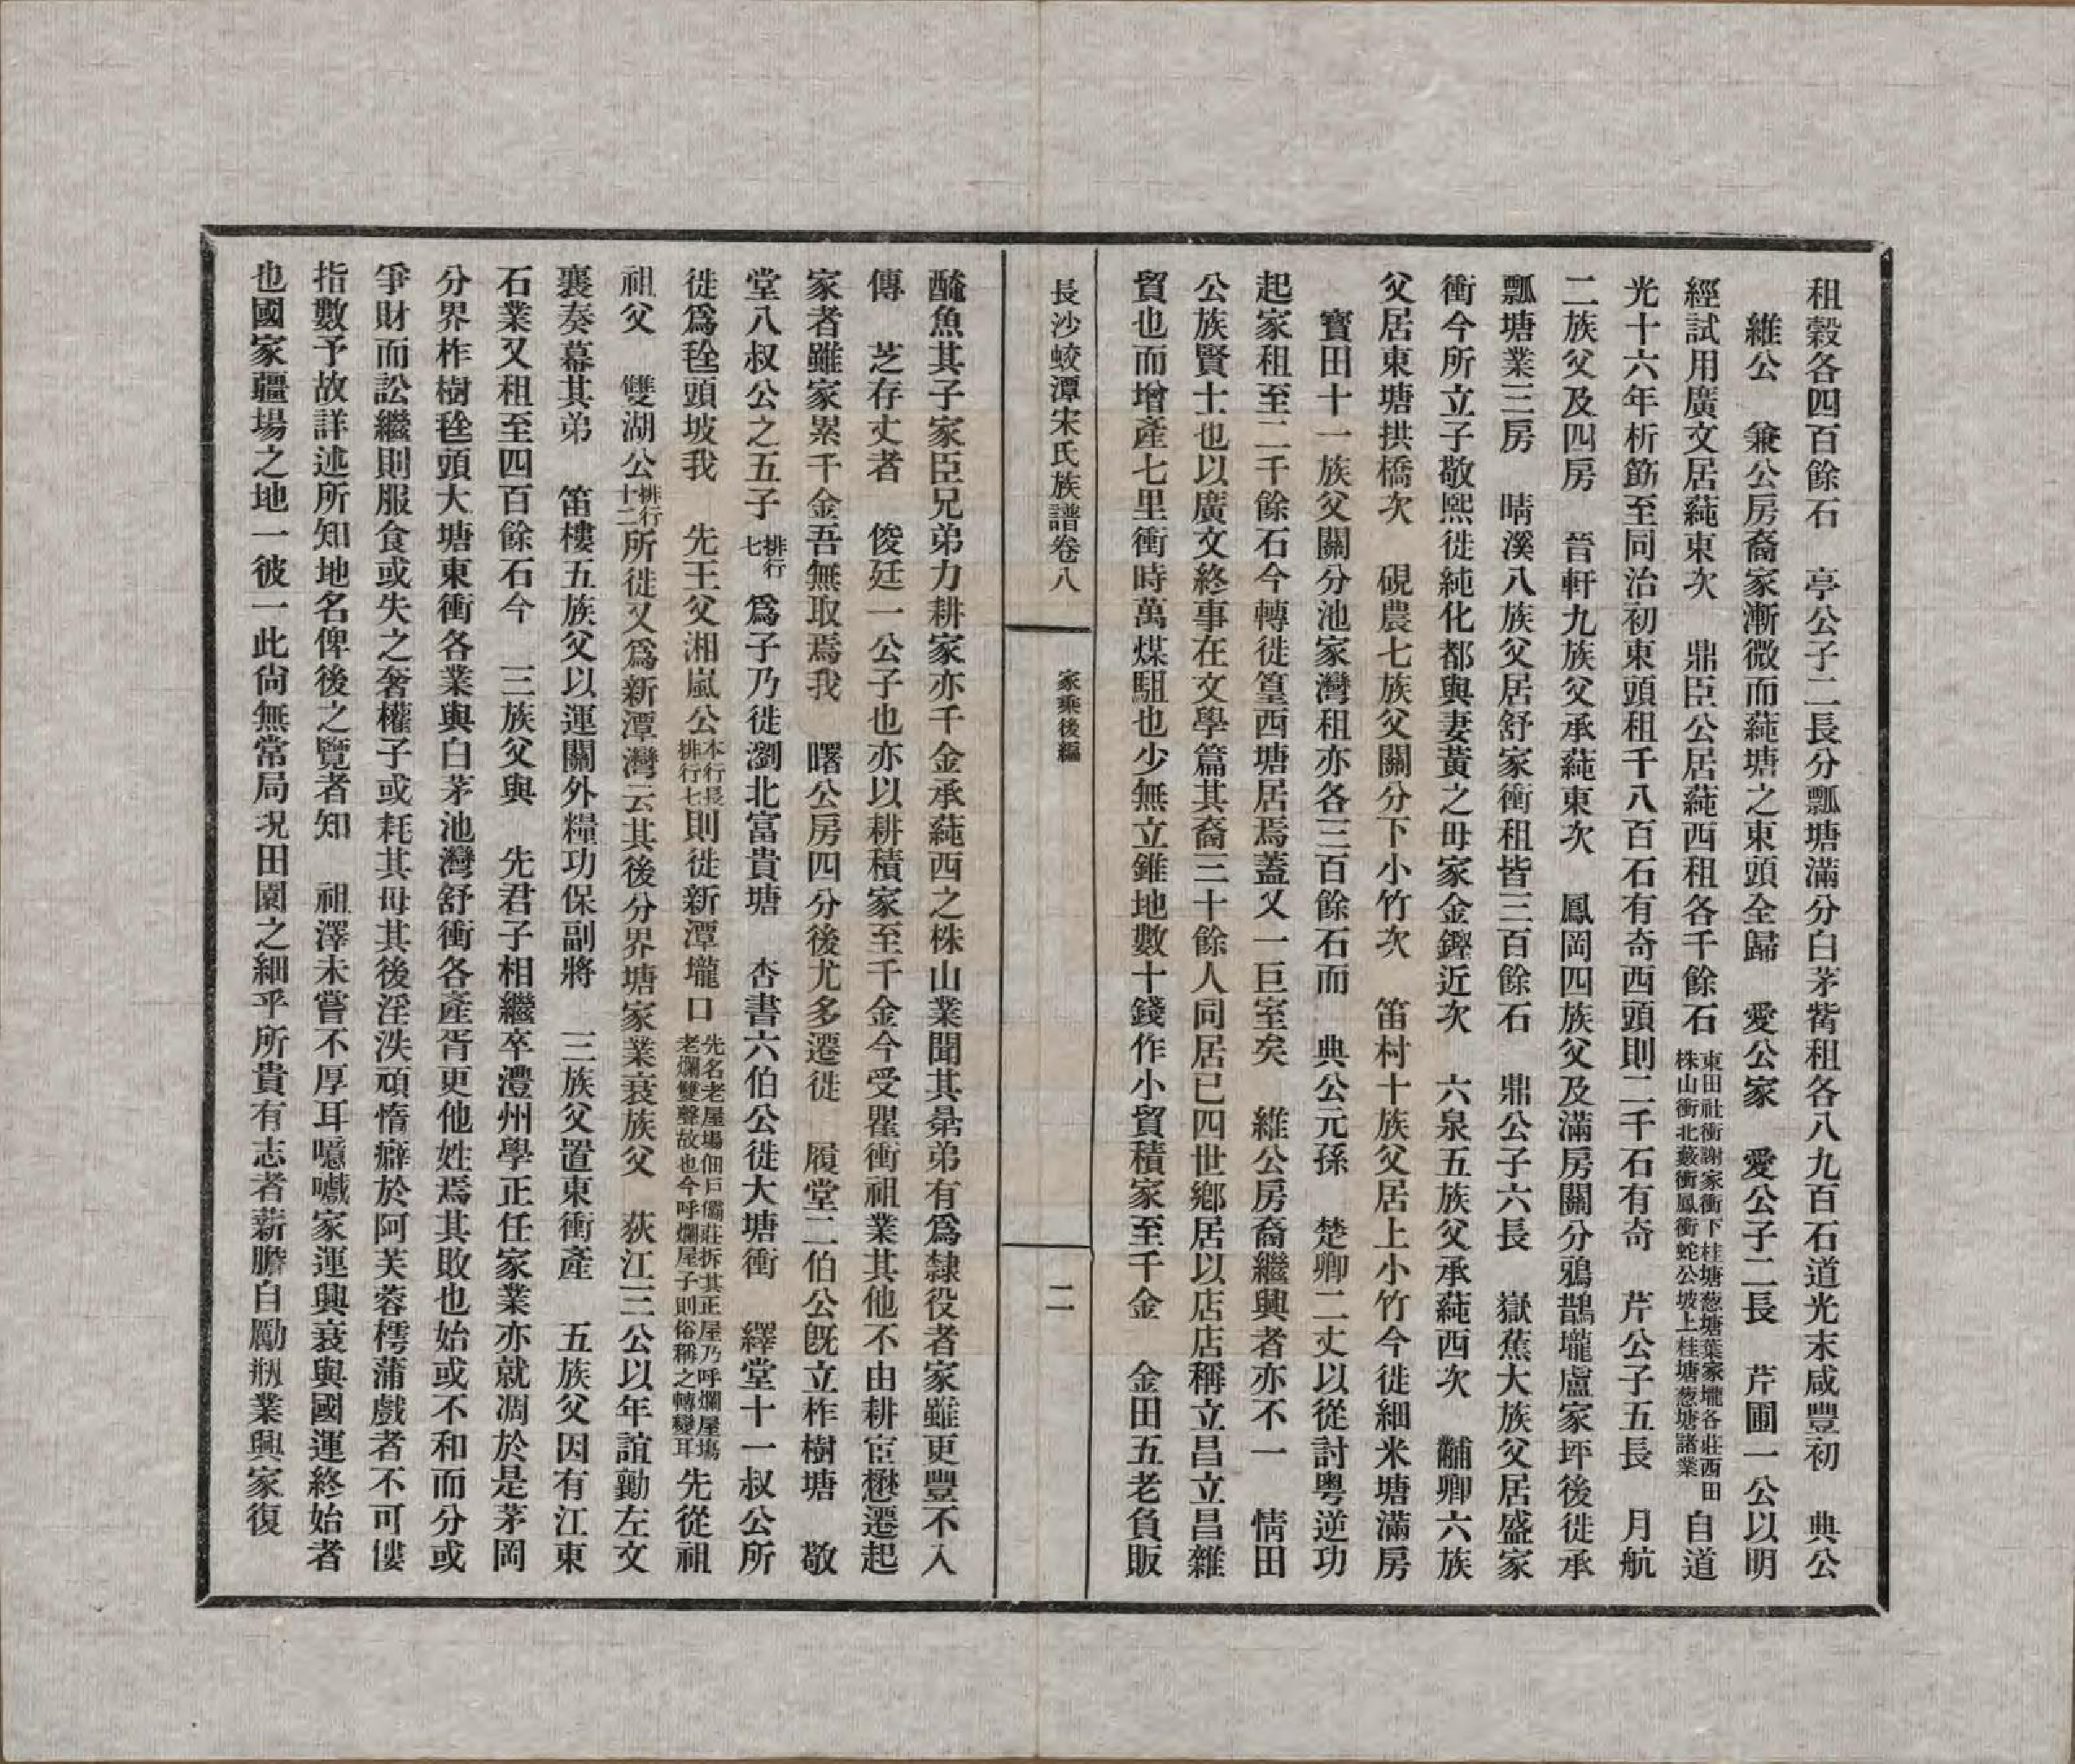 租穀各四百餘石　亭公子二長分瓢塘滿分白茅觜租各八九百石道光末咸豐初　典公
維公　兼公房裔家漸微而蒓塘之東頭全歸　愛公家　愛公子二長　芹圃一公以明
經試用廣文居蒓東次　鼎臣公居蒓西租各千餘石東田社衝謝家衝下桂塘葱塘葉家壠各莊西田株山衝北薮衝鳳衝蛇公坡上桂塘葱塘諸業自道
光十六年析箸至同治初東頭租千八百石有奇西頭則二千石有奇　芹公子五長　月航
二族父及四房　晉軒九族父承蒓東次　鳳岡四族父及滿房關分鴉鵲壠盧家坪後徙承
瓢塘業三房　晴溪八族父居舒家衝租皆三百餘石　鼎公子六長　嶽蕉大族父居盛家
衝今所立子敬熙徙純化都與妻黃之母家金鏗近次　六泉五族父承蒓西次　黼卿六族
父居東塘拱橋次　硯農七族父關分下小竹次　笛村十族父居上小竹今徙細米塘滿房
寶田十一族父關分池家灣租亦各三百餘石而　典公元孫　楚卿二丈以從討粵逆功
起家租至二千餘石今轉徙篁西塘居焉蓋又一巨室矣　維公房裔繼興者亦不一　情田
公族賢士也以廣文終事在文學篇其裔三十餘人同居已四世鄉居以店店稱立昌立昌雜
貿也而增產七里衝時萬煤駔也少無立錐地數十錢作小貿積家至千金　金田五老負販
長沙蛟潭宋氏族譜卷八　家乘後編　二
醃魚其子家臣兄弟力耕家亦千金承蒓西之株山業聞其晜弟有爲隸役者家雖更豐不入
傳　芝存丈者　俊廷一公子也亦以耕積家至千金今受瞿衝祖業其他不由耕宦懋遷起
家者雖家累千金吾無取焉我　曙公房四分後尤多遷徙　履堂二伯公既立柞樹塘　敬
堂八叔公之五子排行七爲子乃徙瀏北富貴塘　杏書六伯公徙大塘衝　繹堂十一叔公所
徙爲毪頭坡我　先王父湘嵐公本行長排行七則徙新潭壠口先名老屋場佃戶備莊拆其正屋乃呼爛屋塲老爛雙聲故也今呼爛屋子則俗稱之轉變耳先從祖
祖父　雙湖公排行十二所徙又爲新潭灣云其後分界塘家業衰族父　荻江三公以年誼勷左文
襄奏幕其弟　笛樓五族父以運關外糧功保副將　三族父置東衝產　五族父因有江東
石業又租至四百餘石今　三族父與　先君子相繼卒澧州學正任家業亦就凋於是茅岡
分界柞樹毪頭大塘東衝各業與白茅池灣舒衝各產胥更他姓焉其敗也始或不和而分或
爭財而訟繼則服食或失之奢權子或耗其母其後淫泆頑惰癖於阿芙蓉樗蒲戲者不可僂
指數予故詳述所知地名俾後之覽者知　祖澤未嘗不厚耳噫嚱家運興衰與國運終始者
也國家疆場之地一彼一此尙無常局況田園之細乎所貴有志者薪膽自勵刱業興家復